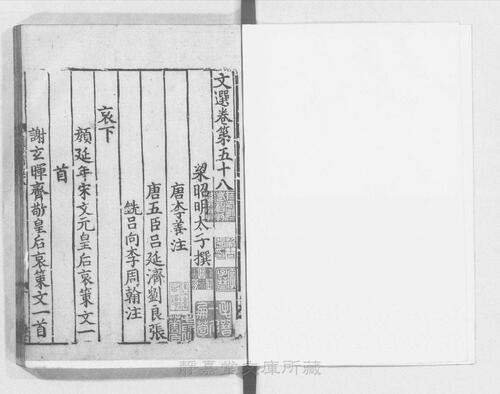 文選卷第五十八
梁昭明太子撰
唐李善注
唐五臣呂延濟劉良張
銑呂向李周翰注
哀下
顔延年宋文元皇后哀策文一
首
謝玄暉齊敬皇后哀策文一首
靜嘉堂文庫所藏